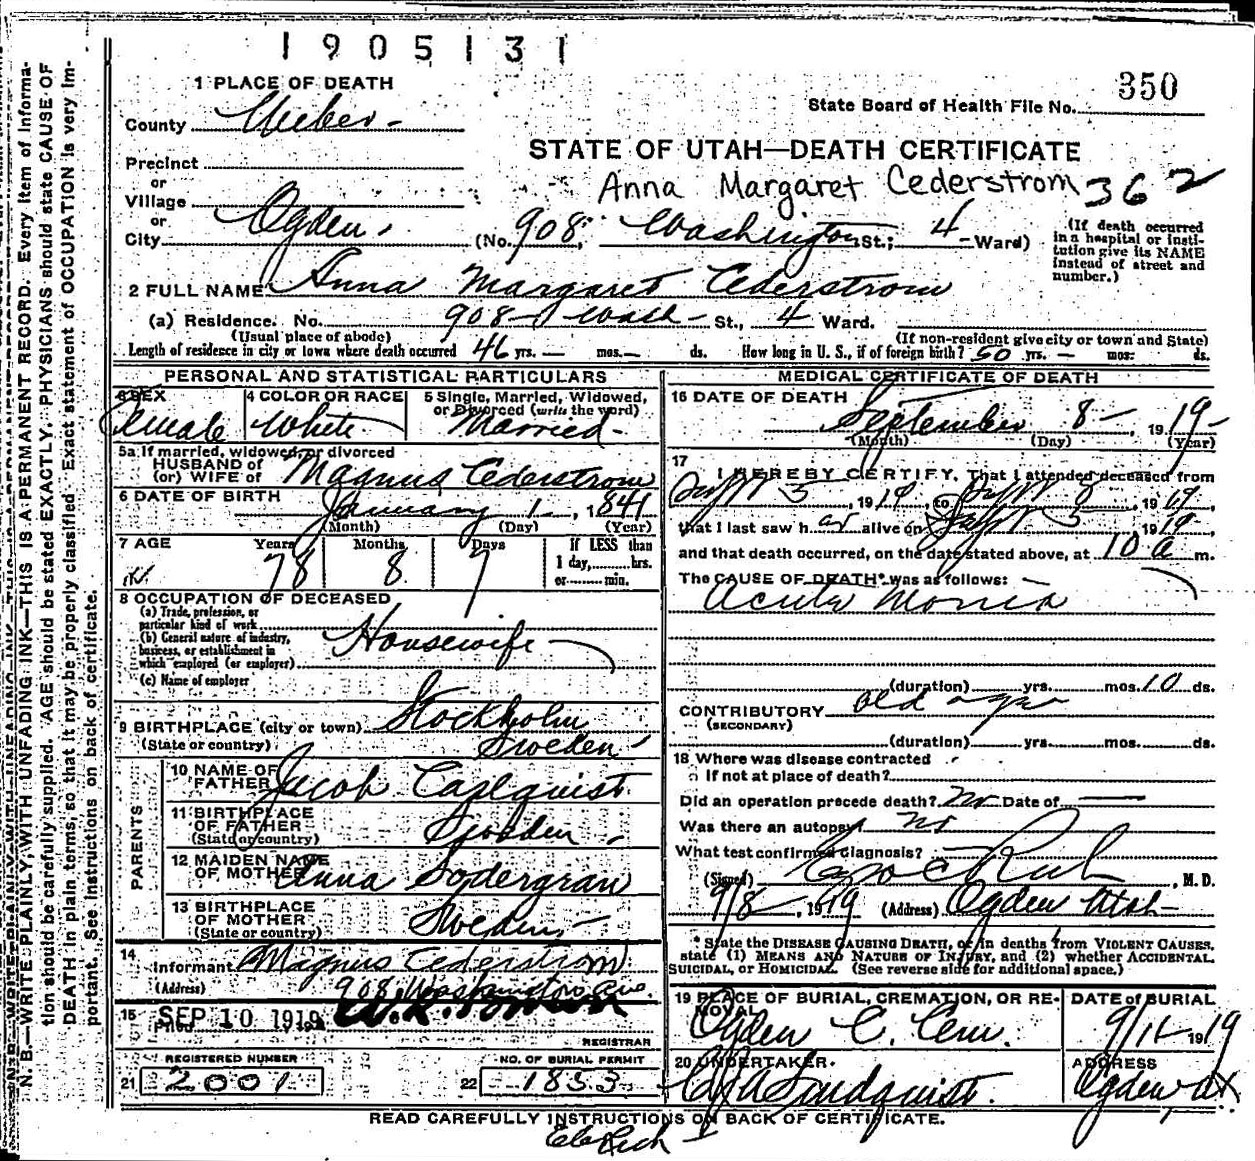 1905131
350
1 PLACE OF DEATH
State Board of Health File No.
County Weber
STATE OF UTAH—DEATH CERTIFICATE
Precinct
or
Village
Anna Margaret Cederstrom 362
or
City Ogden (No. 908 Washington St.; 4 Ward)
(If death occurred in a hospital or institution give its NAME instead of street and number.)
2 FULL NAME Anna Margaret Cederstrom
(a) Residence. No. 908 Wash St., 4 Ward.
(Usual place of abode) (If non-resident give city or town and State)
Length of residence in city or town where death occurred 46 yrs. — mos. — ds. How long in U. S., if of foreign birth? 50 yrs. — mos. ds.
PERSONAL AND STATISTICAL PARTICULARS
3 SEX Female
4 COLOR OR RACE White
5 Single, Married, Widowed, or Divorced (write the word) Married
5a If married, widowed, or divorced
HUSBAND of
(or) WIFE of Magnus Cederstrom
6 DATE OF BIRTH January 1, 1841
(Month) (Day) (Year)
7 AGE Years 78 Months 8 Days 7
If LESS than 1 day, hrs. or min.
8 OCCUPATION OF DECEASED
(a) Trade, profession, or particular kind of work
Housewife
(b) General nature of industry, business, or establishment in which employed (or employer)
(c) Name of employer
9 BIRTHPLACE (city or town) Stockholm
(State or country) Sweden
PARENTS
10 NAME OF FATHER Jacob Carlquist
11 BIRTHPLACE OF FATHER (State or country) Sweden
12 MAIDEN NAME OF MOTHER Anna Sodergran
13 BIRTHPLACE OF MOTHER (State or country) Sweden
14 Informant Magnus Cederstrom
(Address) 908 Washington Ave.
15 Filed SEP 10 1919
REGISTRAR
REGISTERED NUMBER
21 2001
NO. OF BURIAL PERMIT
22 1833
MEDICAL CERTIFICATE OF DEATH
16 DATE OF DEATH September 8 1919
(Month) (Day) (Year)
17 I HEREBY CERTIFY, That I attended deceased from
Sept 3, 1919, to Sept 8, 1919,
that I last saw her alive on Sept 5 1919
and that death occurred, on the date stated above, at 10 a m.
The CAUSE OF DEATH* was as follows:
Acute
(duration) yrs. mos. 10 ds.
CONTRIBUTORY old age
(SECONDARY)
(duration) yrs. mos. ds.
18 Where was disease contracted
if not at place of death?
Did an operation precede death? No Date of —
Was there an autopsy? no
What test confirmed diagnosis?
(Signed) , M. D.
9/8, 1919 (Address) Ogden Utah
* State the DISEASE CAUSING DEATH, or in deaths from VIOLENT CAUSES, state (1) MEANS AND NATURE OF INJURY, and (2) whether ACCIDENTAL, SUICIDAL, or HOMICIDAL. (See reverse side for additional space.)
19 PLACE OF BURIAL, CREMATION, OR REMOVAL
Ogden C. Cem.
DATE of BURIAL
9/11 1919
20 UNDERTAKER
ADDRESS
Ogden, Ut
READ CAREFULLY INSTRUCTIONS ON BACK OF CERTIFICATE.
N. B.—WRITE PLAINLY, WITH UNFADING INK—THIS IS A PERMANENT RECORD. Every item of information should be carefully supplied. AGE should be stated EXACTLY. PHYSICIANS should state CAUSE OF DEATH in plain terms, so that it may be properly classified. Exact statement of OCCUPATION is very important. See instructions on back of certificate.